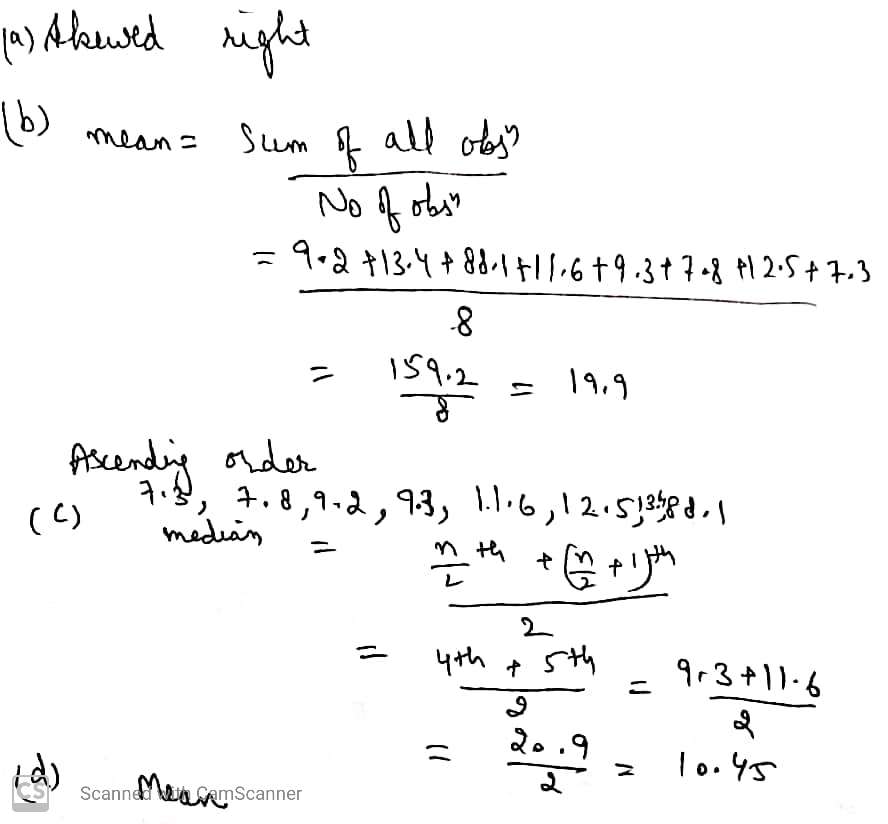 (a) Skewed right
(b) mean = Sum of all obsn
No of obsn
= 9.2 + 13.4 + 88.1 + 11.6 + 9.3 + 7.8 + 12.5 + 7.3
8
= 159.2 = 19.9
8
Ascending order
7.3, 7.8, 9.2, 9.3, 11.6, 12.5, 13.4, 88.1
(c) median = n th + (n + 1)th
2 2
2
= 4th + 5th = 9.3 + 11.6
2 2
= 20.9 = 10.45
2
(d) Mean
CS Scanned with CamScanner